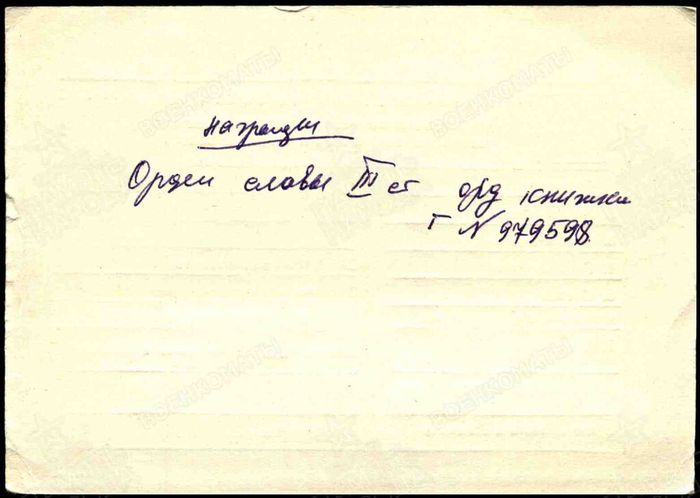 ВОЕНКОМАТЫ ВОЕНКОМАТЫ
награды
Орден славы III ст орд книжка
Г N 979598
ВОЕНКОМАТЫ ВОЕНКОМАТЫ